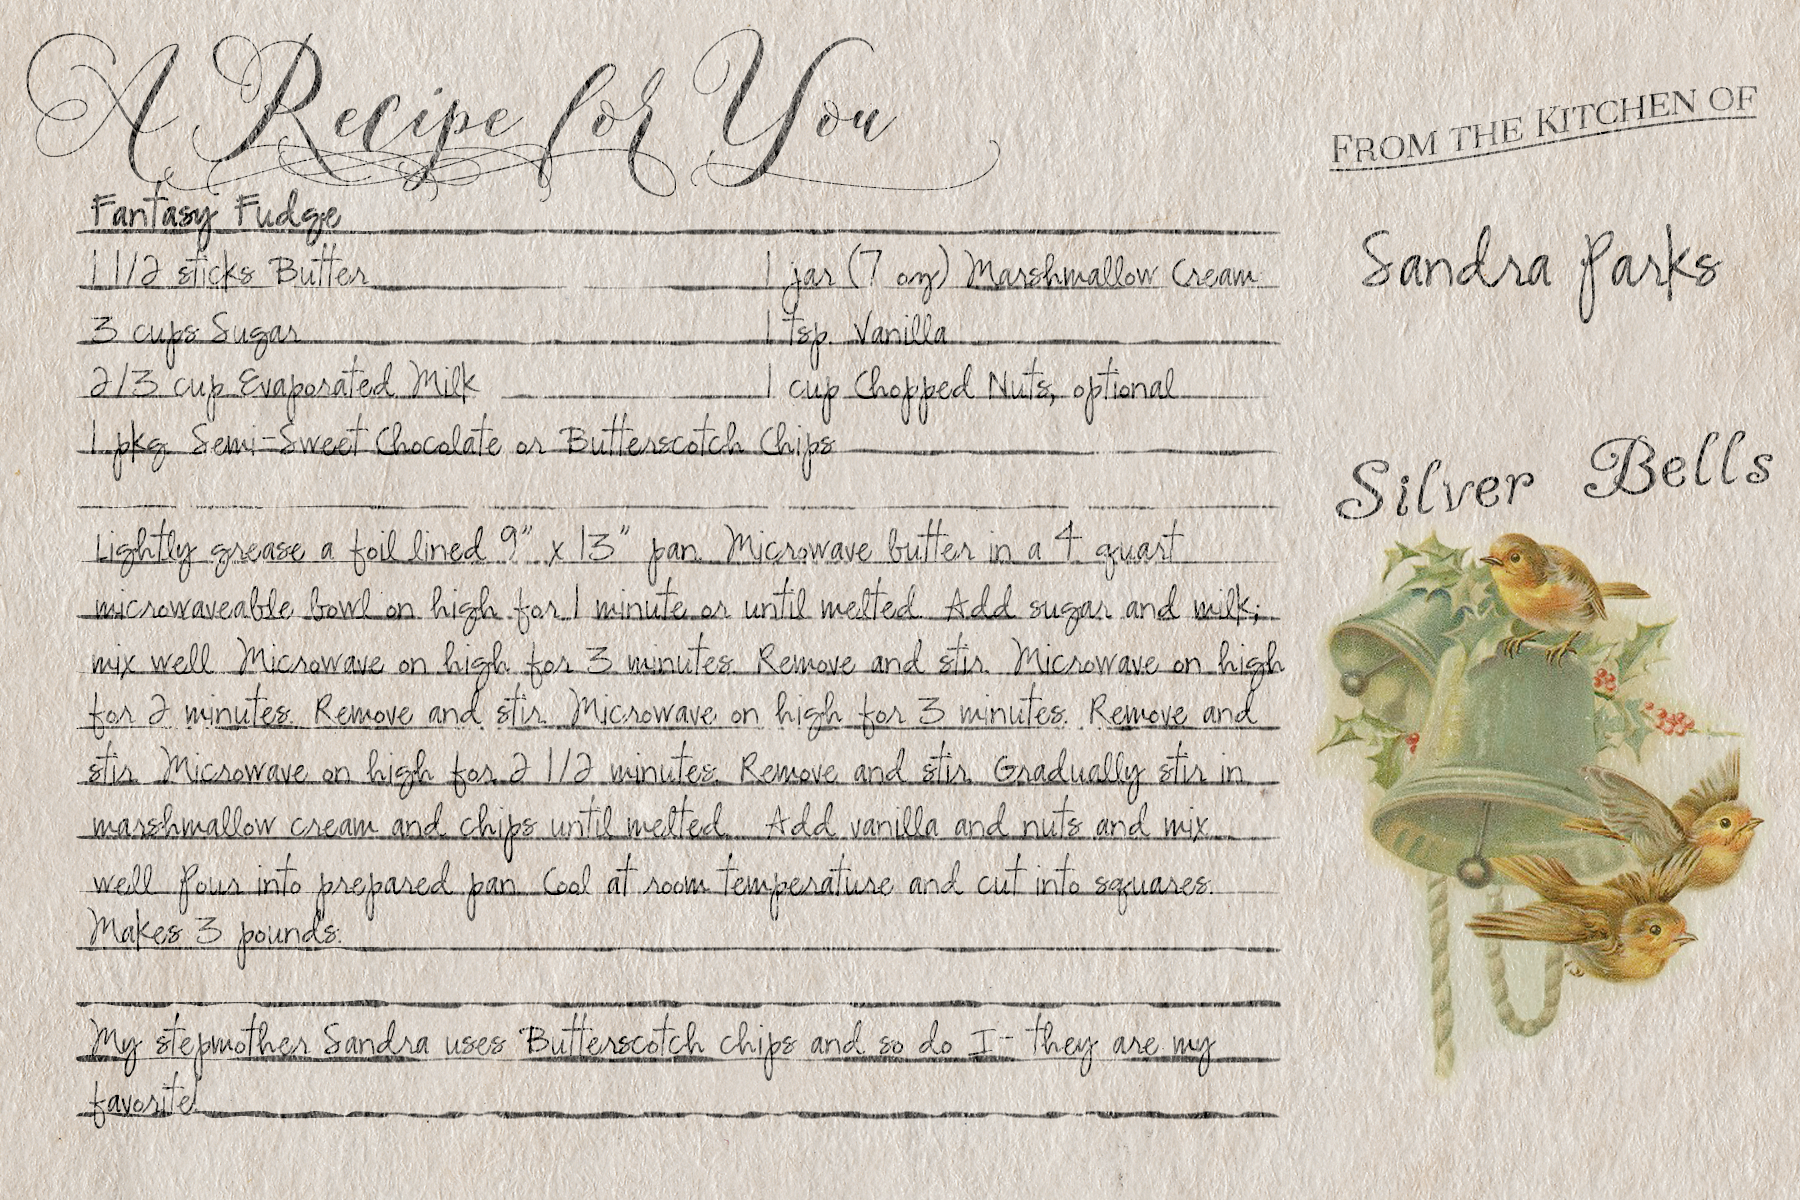 A Recipe for You
FROM THE KITCHEN OF
Sandra Parks
Silver Bells
Fantasy Fudge
1 1/2 sticks Butter 1 jar (7 oz) Marshmallow Cream
3 cups Sugar 1 tsp. Vanilla
2/3 cup Evaporated Milk 1 cup Chopped Nuts, optional
1 pkg. Semi-Sweet Chocolate or Butterscotch Chips
Lightly grease a foil lined 9" x 13" pan. Microwave butter in a 4 quart
microwaveable bowl on high for 1 minute or until melted. Add sugar and milk;
mix well. Microwave on high for 3 minutes. Remove and stir. Microwave on high
for 2 minutes. Remove and stir. Microwave on high for 3 minutes. Remove and
stir. Microwave on high for 2 1/2 minutes. Remove and stir. Gradually stir in
marshmallow cream and chips until melted. Add vanilla and nuts and mix
well. Pour into prepared pan. Cool at room temperature and cut into squares.
Makes 3 pounds.
My stepmother Sandra uses Butterscotch chips and so do I - they are my
favorite!